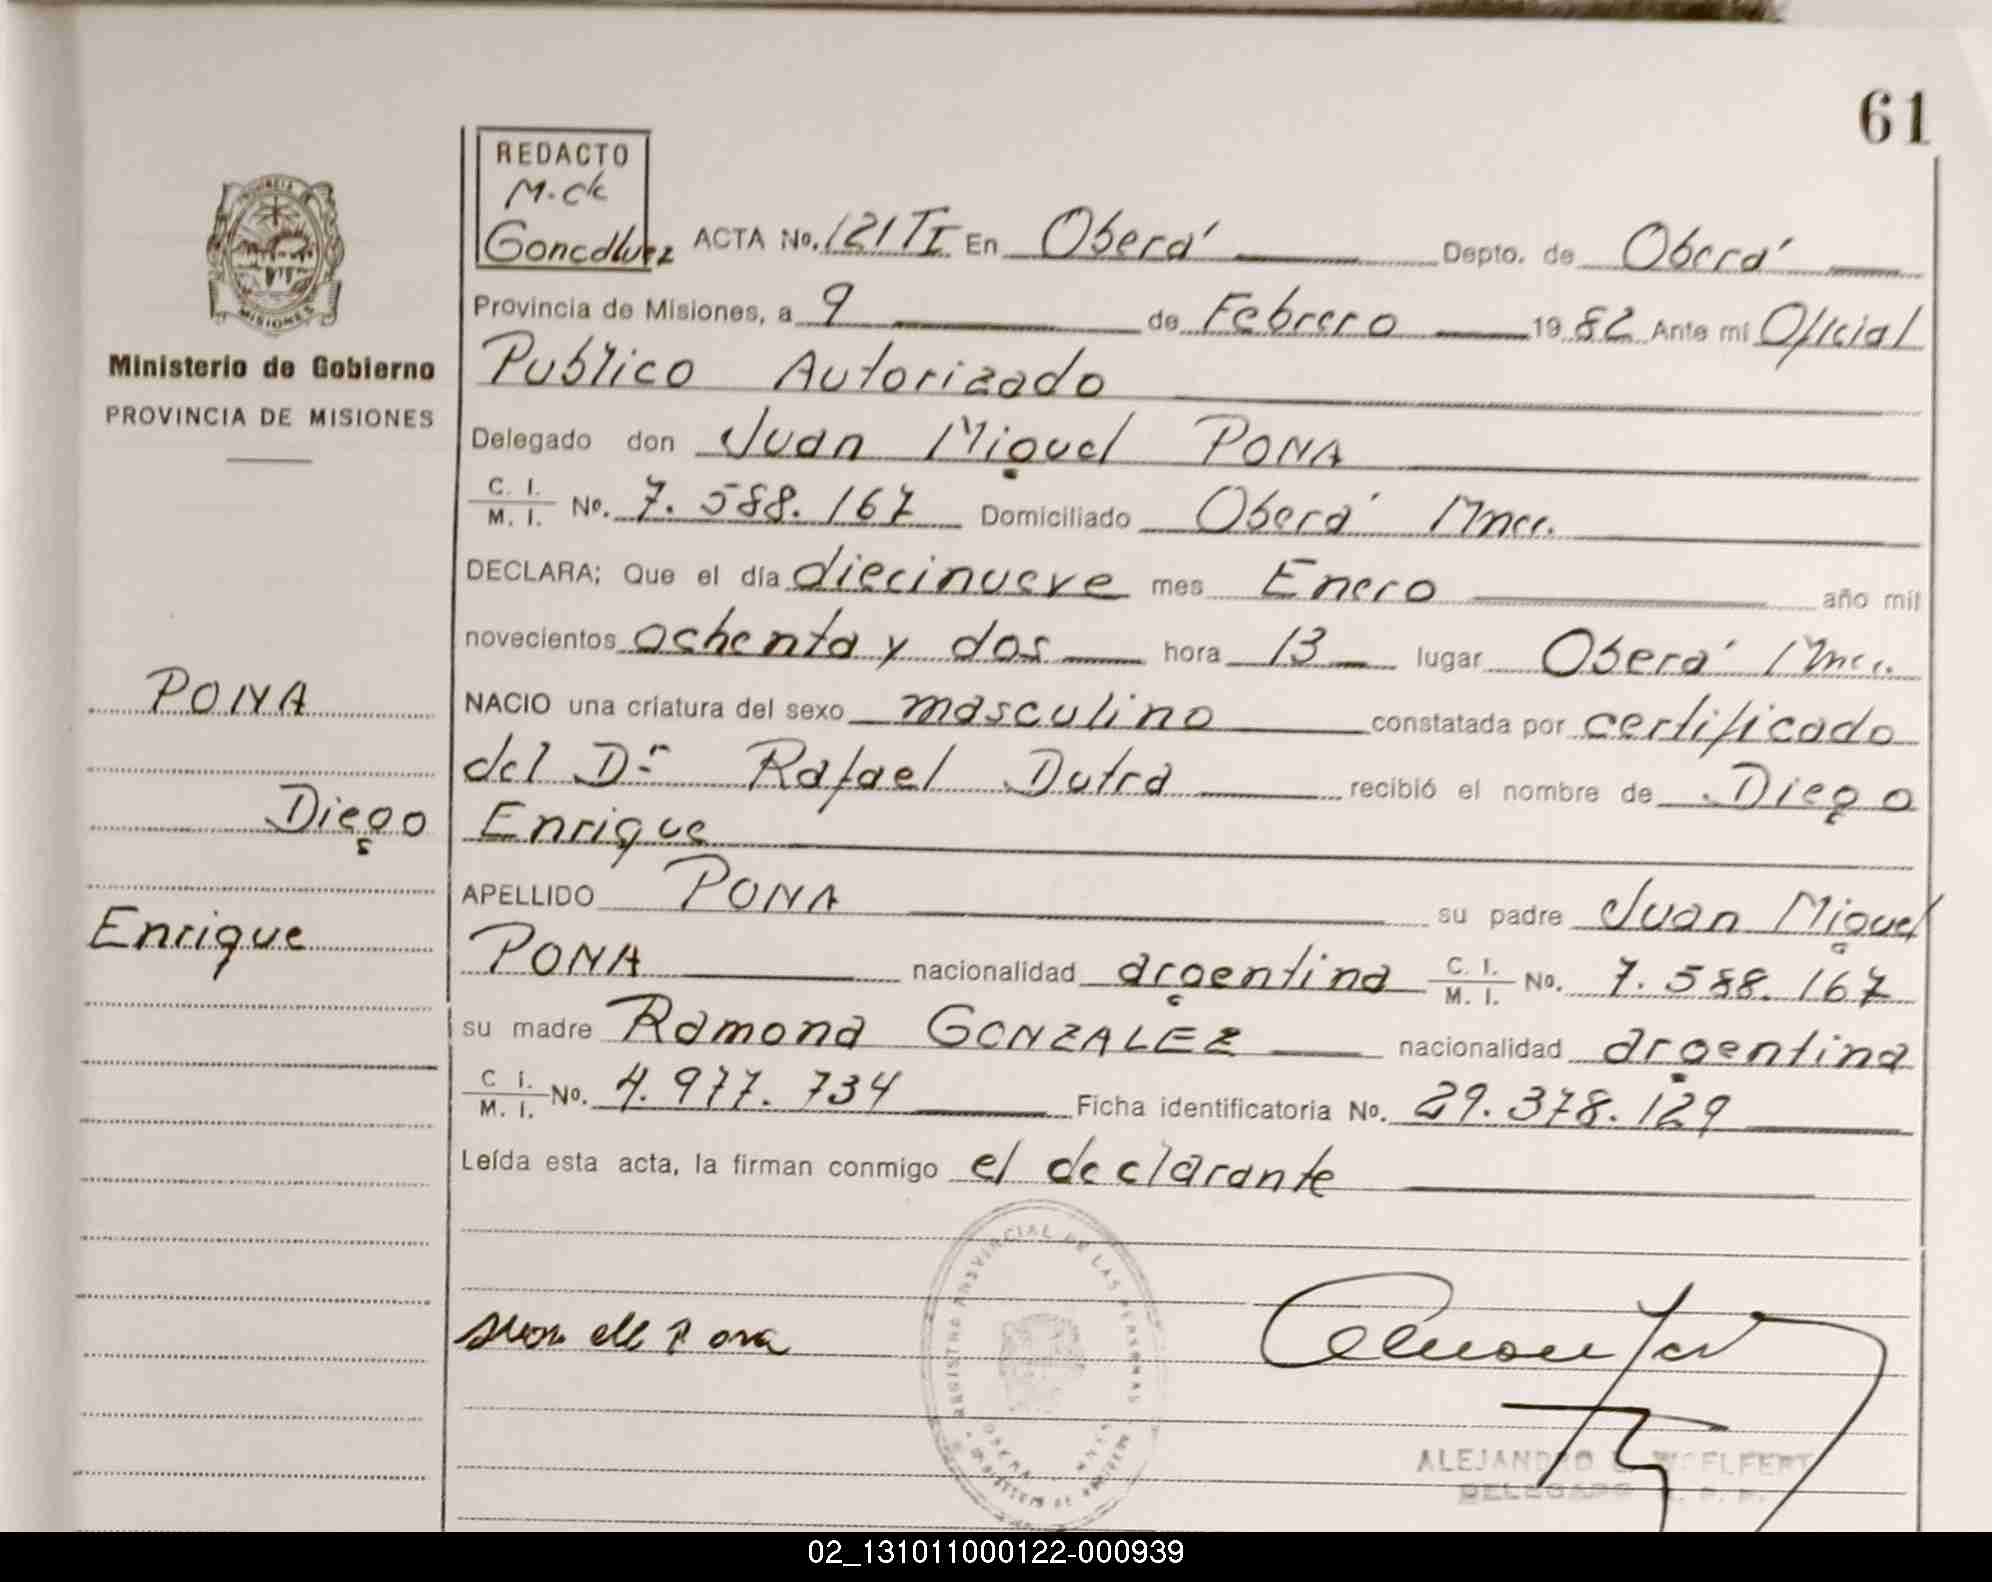 61
REDACTO
M. ck
Goncalvez ACTA No. 121 TI En Oberá Depto. de Oberá
Provincia de Misiones, a 9 de Febrero 1982 Ante mi Oficial
Publico Autorizado
Ministerio de Gobierno
PROVINCIA DE MISIONES
Delegado don Juan Miguel PONA
C. I. M. I. No. 7.588.167 Domiciliado Oberá Mnes.
DECLARA; Que el día diecinueve mes Enero año mil
novecientos ochenta y dos hora 13 lugar Oberá Mnes.
PONA
NACIO una criatura del sexo masculino constatada por certificado
del Dr Rafael Dutra recibió el nombre de Diego
Diego
Enrique
APELLIDO PONA su padre Juan Miguel
Enrique
PONA nacionalidad argentina C. I. M. I. No. 7.588.167
su madre Ramona GONZALEZ nacionalidad argentina
C I. M. I. No. 4.977.734 Ficha identificatoria No. 29.378.129
Leída esta acta, la firman conmigo el declarante
REGISTRO PROVINCIAL DE LAS PERSONAS
Pona
ALEJANDRO
DELEGADO
02_131011000122-000939